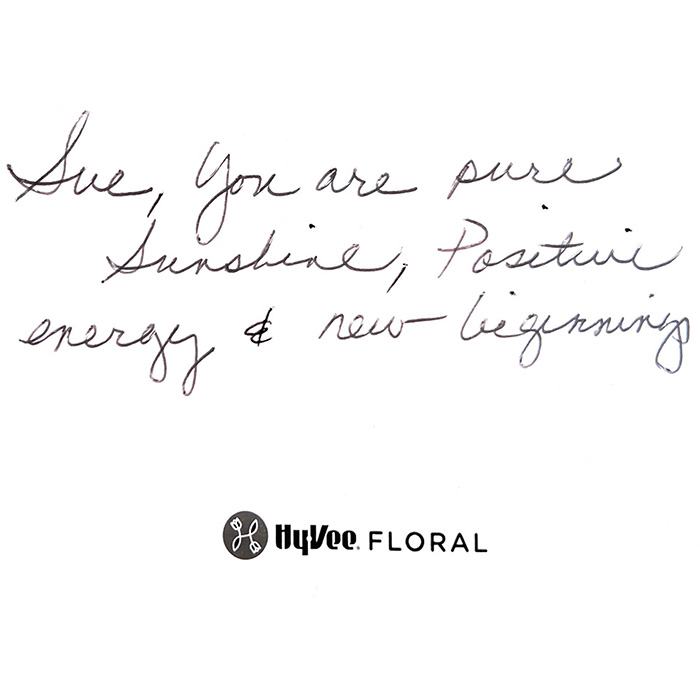 Sue, You are pure
Sunshine, Positive
energy & new beginnings
HyVee. FLORAL